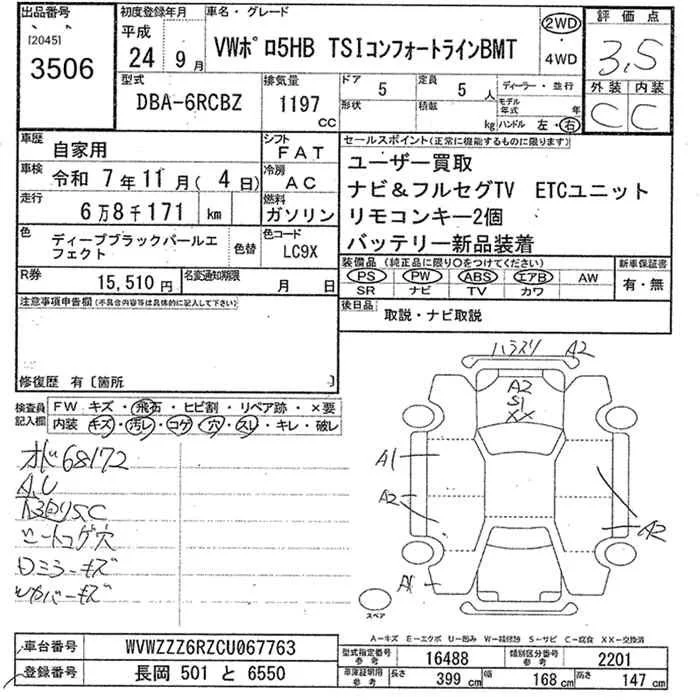 出品番号
[2045]
3506
初度登録年月
平成
24年 9月
車名・グレード
VWポロ5HB TSIコンフォートラインBMT
2WD
・
4WD
評価点
3.5
外装 内装
C C
型式
DBA-6RCBZ
排気量
1197
CC
ドア 5
形状
定員 5人
積載 kg
ディーラー・並行
モデル年式 年
ハンドル 左・右
車歴
自家用
シフト
FAT
車検
令和 7年11月( 4日)
冷房
AC
走行
6万8千171 km
燃料
ガソリン
色
ディープブラックパールエフェクト
色替
色コード
LC9X
R券
15,510円
名変通知期限
月 日
セールスポイント(正常に機能するものに限ります)
ユーザー買取
ナビ&フルセグTV ETCユニット
リモコンキー2個
バッテリー新品装着
装備品(純正品に限り○をつけてください)
PS PW ABS エアB AW
SR ナビ TV カワ
新車保証書
有・無
後日品
取説・ナビ取説
注意事項申告欄(不具合内容等は具体的に記入して下さい)
修復歴 有〔箇所 〕
検査員記入欄
FW キズ・飛石・ヒビ割・リペア跡・×要
内装 キズ・汚レ・コゲ・穴・スレ・キレ・破レ
オド68172
A.U
シートコゲ穴
Dミラーキズ
ハラスリ A2
A2
S1
XX
A1
A2
A2
A1
スペア
A-キズ E-エクボ U-凹み W-補修跡 S-サビ C-腐食 XX-交換済
車台番号
WVWZZZ6RZCU067763
登録番号
長岡 501 と 6550
型式指定番号
参考
16488
類別区分番号
参考
2201
車庫証明用
参考
長さ 399 cm 幅 168 cm 高さ 147 cm